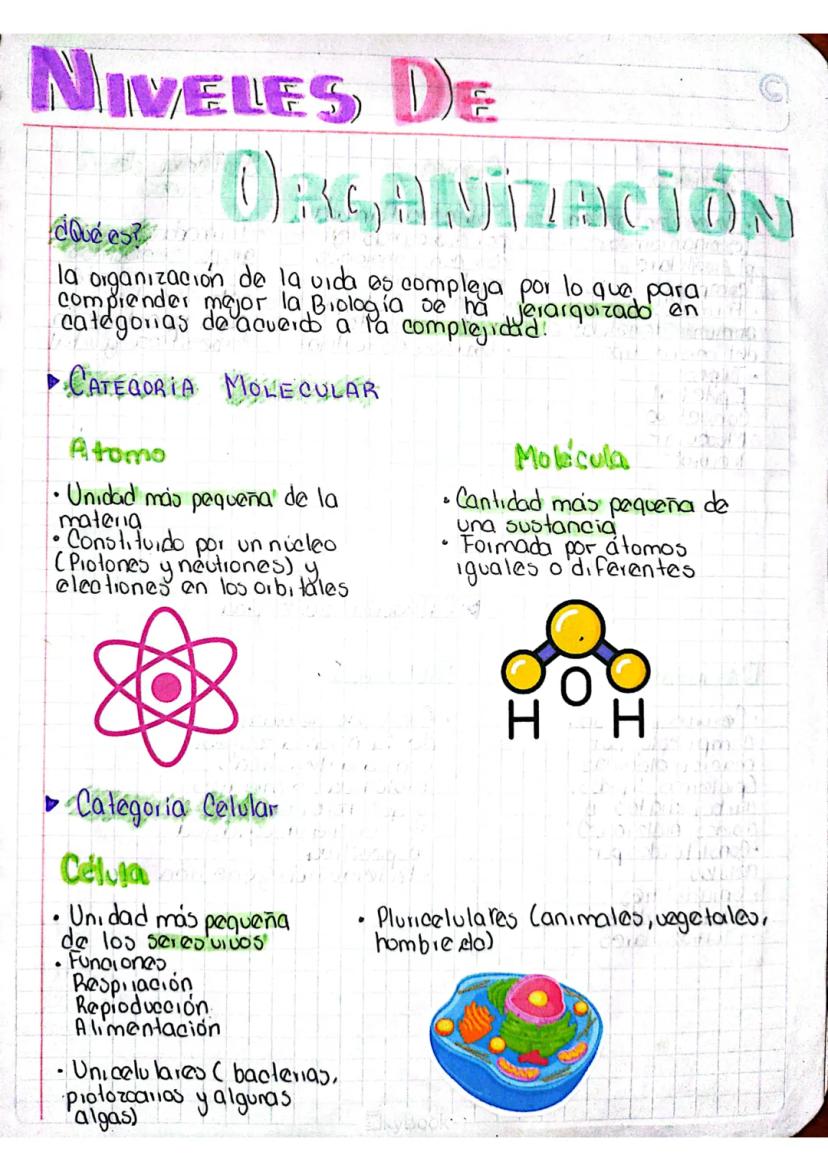 NIVELES DE
ORGANIZACIÓN
¿Qué es?
la organización de la vida es compleja por lo que para
comprender mejor la Biología se ha jerarquizado en
categorias de acuerdo a la complejidad.
CATEGORIA MOLECULAR
Átomo
• Unidad más pequeña de la
materia
• Constituido por un núcleo
(Protones y neutrones) y
electrones en los orbitales
Molécula
• Cantidad más pequeña de
una sustancia
• Formada por átomos
iguales o diferentes
H O H
Categoria Celular
Célula
• Unidad más pequeña
de los seres vivos
• Funciones
Respiración
Reproducción
Alimentación
• Unicelulares ( bacterias,
protozoarios y algunas
algas)
• Pluricelulares (animales, vegetales,
hombre